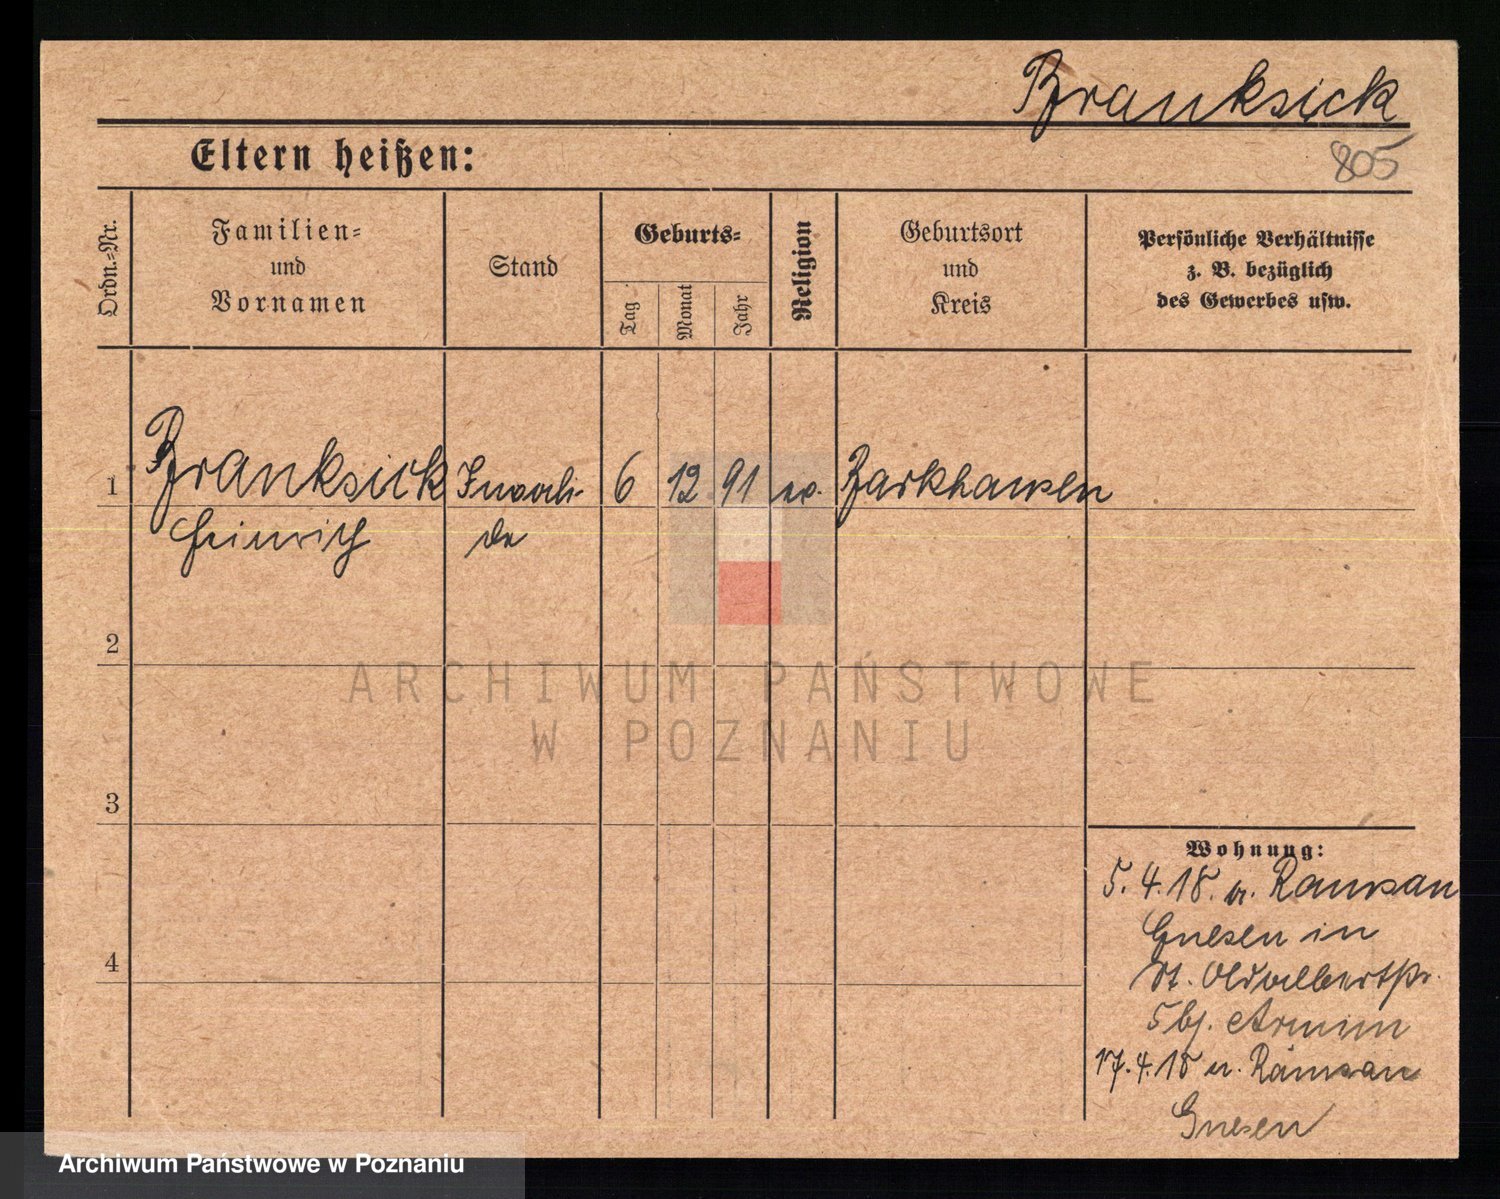 Branksick
805
Eltern heißen:
Ordn.-Nr.
Familien-
und
Vornamen
Stand
Geburts-
Tag
Monat
Jahr
Religion
Geburtsort
und
Kreis
Persönliche Verhältnisse
z. B. bezüglich
des Gewerbes usw.
1 Branksick Invali- 6 12 91 ev. Barkhausen
Heinrich de
2
3
4
Wohnung:
5.4.18. v. Ramsau
Gnesen in
St. Adalbertstr.
5 bj. Armim
17.4.18 n. Ramsau
Gnesen
ARCHIWUM PAŃSTWOWE
W POZNANIU
Archiwum Państwowe w Poznaniu